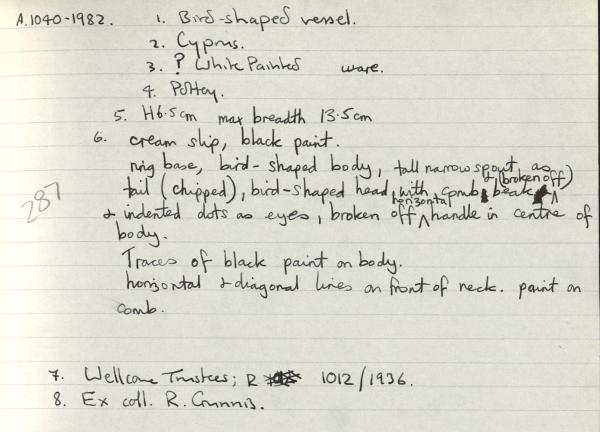 A.1040-1982. 1. Bird-shaped vessel.
2. Cyprus.
3. ? White Painted ware.
4. Pottery.
5. H 6.5cm max breadth 13.5cm
6. cream slip, black paint.
ring base, bird-shaped body, tall narrow spout as
tail (chipped), bird-shaped head, with comb & beak (broken off)
& indented dots as eyes, broken off horizontal handle in centre of
body.
Traces of black paint on body.
horizontal & diagonal lines on front of neck. paint on
comb.
287
7. Wellcome Trustees; R 1012/1936.
8. Ex coll. R. Gunnis.